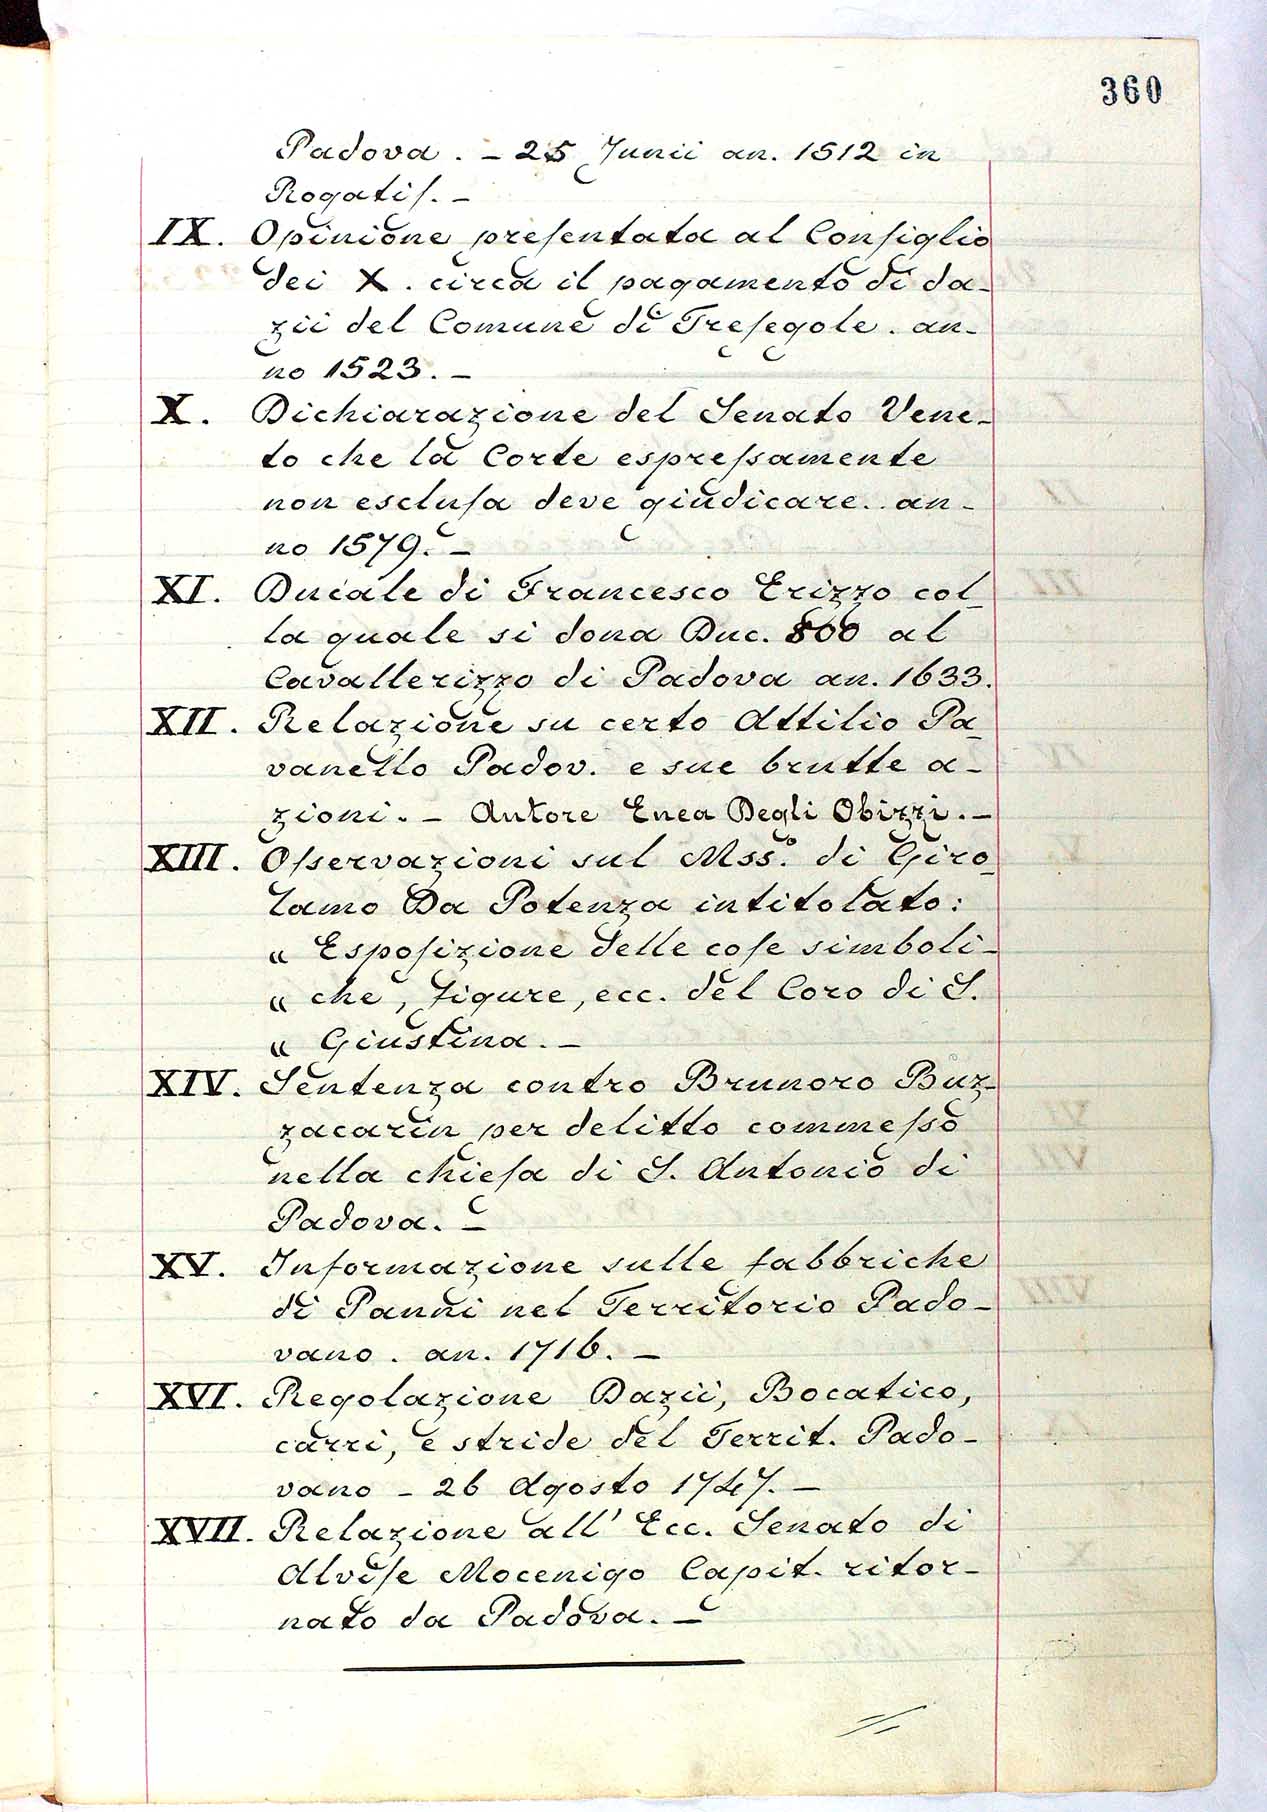 360
Padova. – 25 Junii an. 1512 in
Rogatiſ. –
IX. Opinione preſentata al Conſiglio
dei X. circa il pagamento di da-
zii del Comune di Treſegole. an-
no 1523. –
X. Dichiarazione del Senato Vene-
to che la Corte espreſsamente
non escluſa deve giudicare. an-
no 1579. –
XI. Ducale di Francesco Erizzo col-
la quale si dona Duc. 800 al
Cavallerizzo di Padova an. 1633.
XII. Relazione su certo Attilio Pa-
vanello Padov. e sue brutte a-
zioni. – Autore Enea Degli Obizzi. –
XIII. Oſservazioni sul Mss.º di Giro-
lamo Da Potenza intitolato:
„ Espoſizione delle coſe simboli-
„ che, figure, ecc. del Coro di S.
„ Giustina. –
XIV. Sentenza contro Brunoro Buz-
zacarin per delitto commeſso
nella chieſa di S. Antonio di
Padova. –
XV. Informazione sulle fabbriche
di Panni nel Territorio Pado-
vano. an. 1716. –
XVI. Regolazione Dazii, Bocatico,
carri, e stride del Territ. Pado-
vano – 26 Agosto 1747. –
XVII. Relazione all' Ecc. Senato di
Alviſe Mocenigo Capit. ritor-
nato da Padova. –